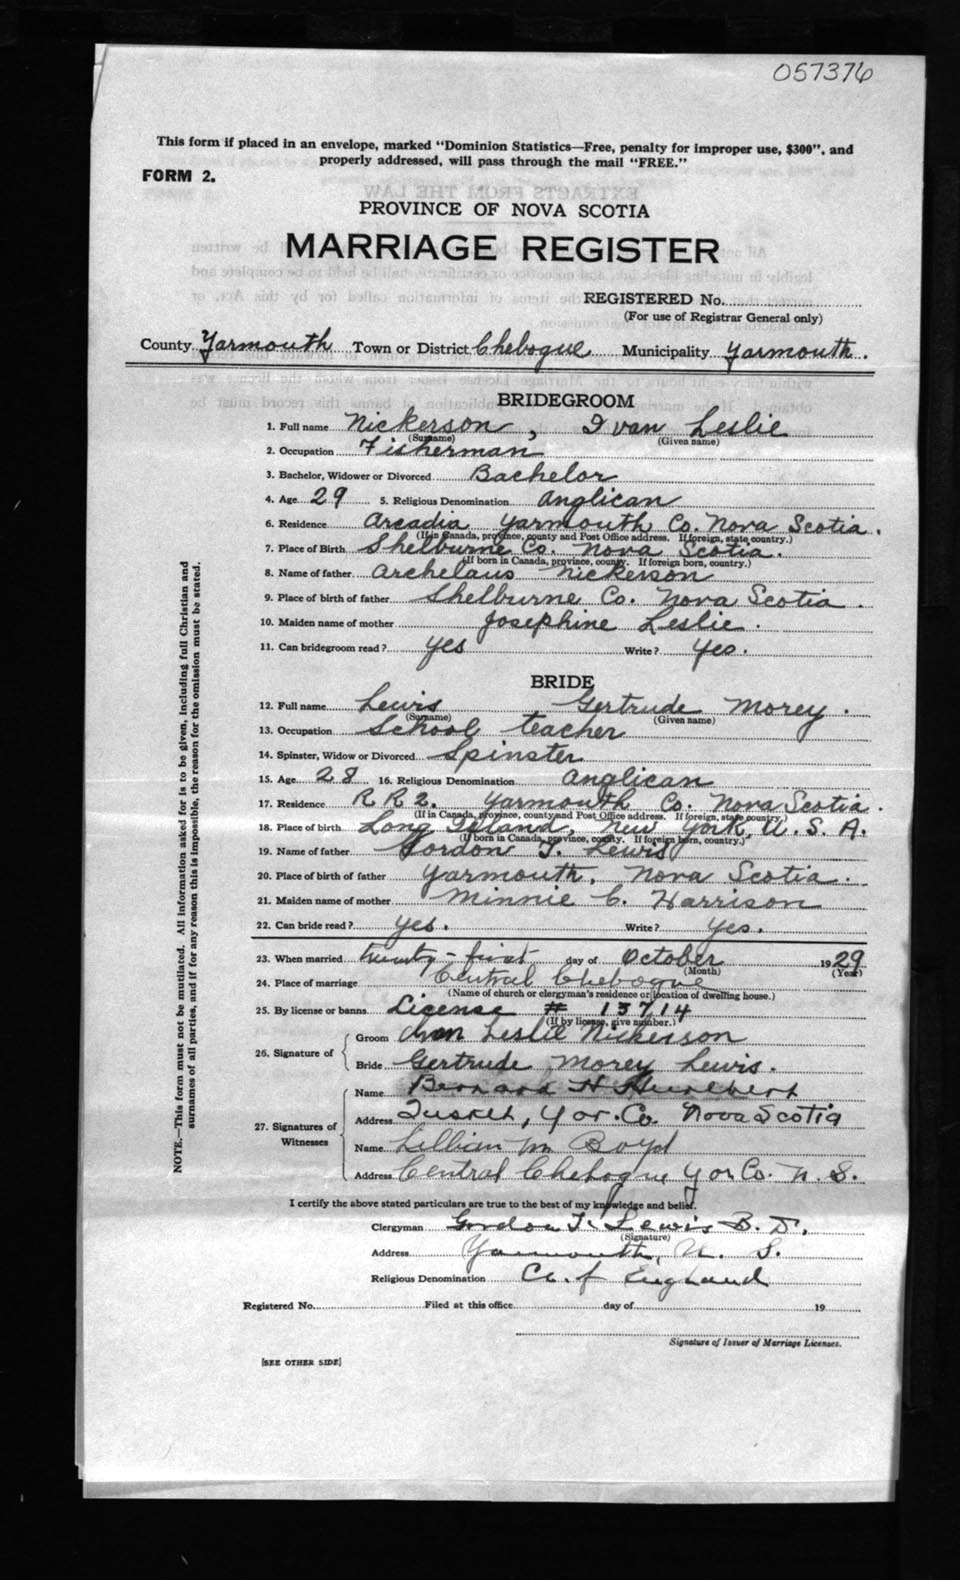 057376
This form if placed in an envelope, marked "Dominion Statistics—Free, penalty for improper use, $300", and
properly addressed, will pass through the mail "FREE."
FORM 2.
PROVINCE OF NOVA SCOTIA
MARRIAGE REGISTER
REGISTERED No.
(For use of Registrar General only)
County Yarmouth Town or District Chebogue Municipality Yarmouth.
BRIDEGROOM
1. Full name Nickerson, Ivan Leslie
(Surname) (Given name)
2. Occupation Fisherman
3. Bachelor, Widower or Divorced Bachelor
4. Age 29 5. Religious Denomination Anglican
6. Residence Arcadia Yarmouth Co. Nova Scotia.
(If in Canada, province, county and Post Office address. If foreign, state country.)
7. Place of Birth Shelburne Co. Nova Scotia.
(If born in Canada, province, county. If foreign born, country.)
8. Name of father Archelaus Nickerson
9. Place of birth of father Shelburne Co. Nova Scotia.
10. Maiden name of mother Josephine Leslie.
11. Can bridegroom read? Yes Write? Yes.
BRIDE
12. Full name Lewis Gertrude Morey.
(Surname) (Given name)
13. Occupation School teacher
14. Spinster, Widow or Divorced Spinster
15. Age 28 16. Religious Denomination Anglican
17. Residence R R 2. Yarmouth Co. Nova Scotia.
(If in Canada, province, county and Post Office address. If foreign, state country.)
18. Place of birth Long Island, New York, U. S. A.
(If born in Canada, province, county. If foreign born, country.)
19. Name of father Gordon T. Lewis
20. Place of birth of father Yarmouth, Nova Scotia.
21. Maiden name of mother Minnie C. Harrison
22. Can bride read? Yes. Write? Yes.
23. When married twenty-first day of October 1929
(Month) (Year)
24. Place of marriage Central Chebogue
(Name of church or clergyman's residence or location of dwelling house.)
25. By license or banns License # 13714
(If by license, give number.)
26. Signature of
Groom Ivan Leslie Nickerson
Bride Gertrude Morey Lewis.
27. Signatures of Witnesses
Name Bernard H Hurlbert
Address Tusket, Yar. Co. Nova Scotia
Name Lillian M Boyd
Address Central Chebogue Yar Co. N. S.
I certify the above stated particulars are true to the best of my knowledge and belief.
Clergyman Gordon T. Lewis B. D.
(Signature)
Address Yarmouth, N. S.
Religious Denomination Ch. of England
Registered No. Filed at this office day of 19
Signature of Issuer of Marriage Licenses.
[SEE OTHER SIDE]
NOTE.—This form must not be mutilated. All information asked for is to be given, including full Christian and
surnames of all parties, and if for any reason this is impossible, the reason for the omission must be stated.